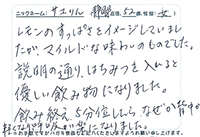 ニックネーム：サエりん 静岡 52歳 性別：女
レモンのすっぱさをイメージしていまし
たが、マイルドな味わいのものでした。
説明の通り、はちみつを入れると
優しい飲み物になりました。
飲み終え5分位したらなぜか背中が
軽くなり になりました。